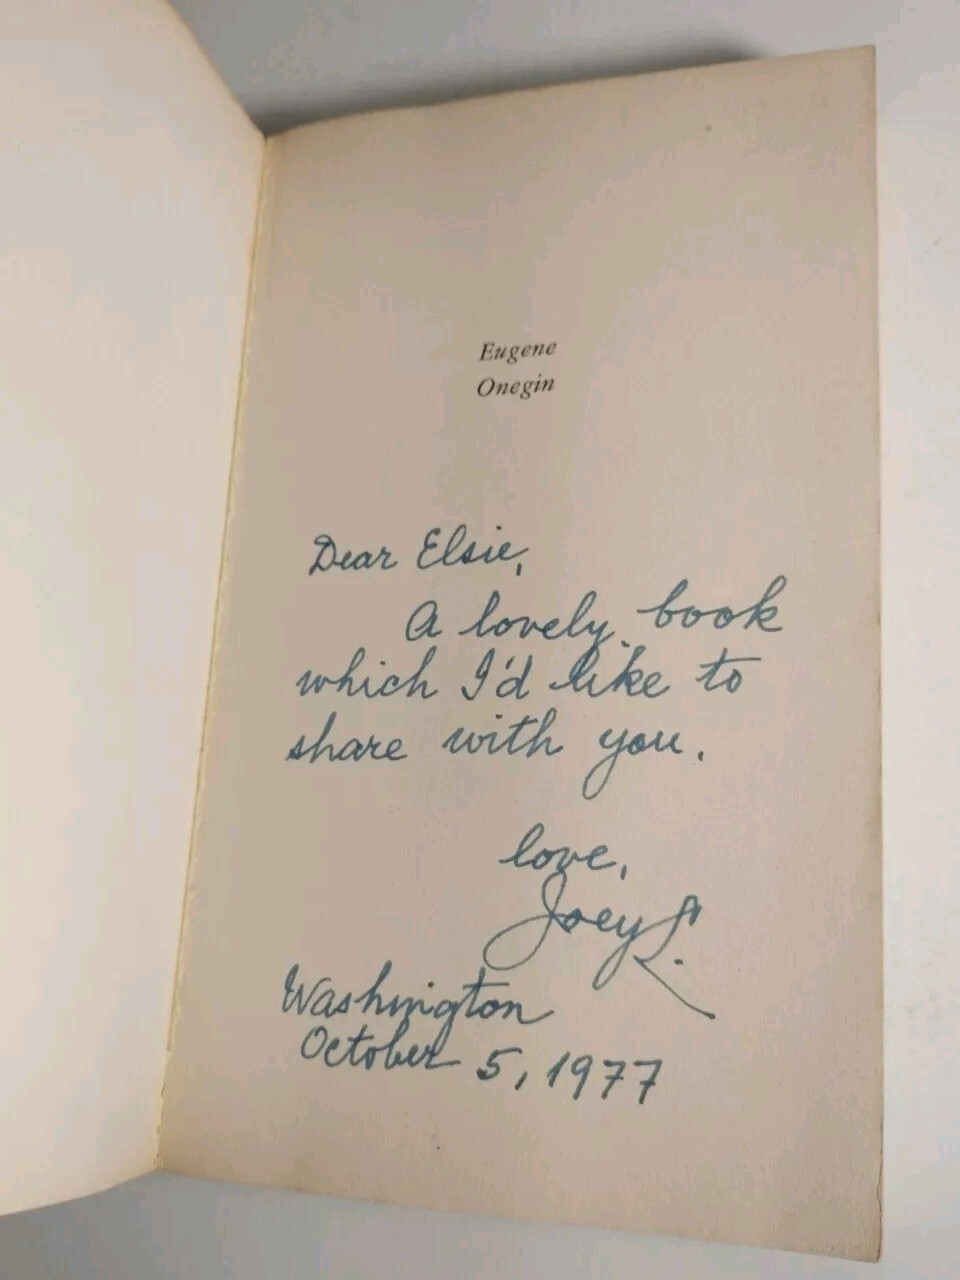 Eugene
Onegin
Dear Elsie,
A lovely book
which I'd like to
share with you.
love,
Joey L.
Washington
October 5, 1977